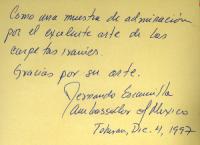 Como una muestra de admiración
por el excelente arte de las
carpetas iraníes.
Gracias por su arte.
Fernando Escamilla
Ambassador of Mexico
Tehran, Dec. 4, 1997